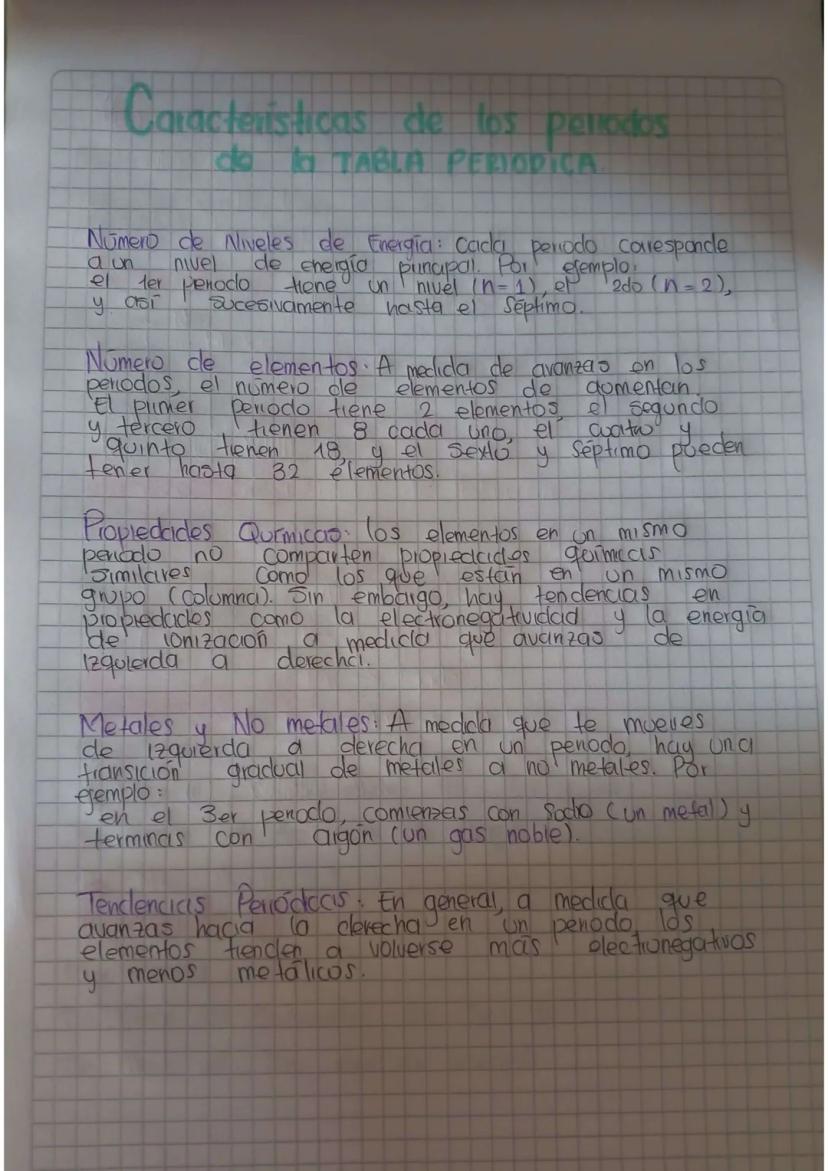 Características de los periodos
de la TABLA PERIODICA.
Número de Niveles de Energía: Cada periodo coresponde
a un nivel de energía principal. Por ejemplo:
el 1er periodo tiene un nivel (n=1), el 2do (n=2),
y así sucesivamente hasta el Séptimo.
Número de elementos: A medida de avanzas en los
periodos, el número de elementos de aomentan.
El primer periodo tiene 2 elementos, el segundo
y tercero tienen 8 cada uno, el cuatro y
quinto tienen 18, y el Sexto y Séptimo pueden
tener hasta 32 elementos.
Propiedades Químicas: los elementos en un mismo
periodo no comparten propiedades químicas
similares como los que están en un mismo
grupo (columna). Sin embargo, hay tendencias en
propiedades como la electronegatividad y la energía
de ionización a medida que avanzas de
izquierda a derecha.
Metales y No metales: A medida que te mueves
de izquierda a derecha en un periodo, hay una
transición gradual de metales a no metales. Por
ejemplo:
en el 3er periodo, comienzas con Sodio (un metal) y
terminas con argón (un gas noble).
Tendencias Periódicas: En general, a medida que
avanzas hacia la derecha en un periodo, los
elementos tienden a volverse más electronegativos
y menos metálicos.